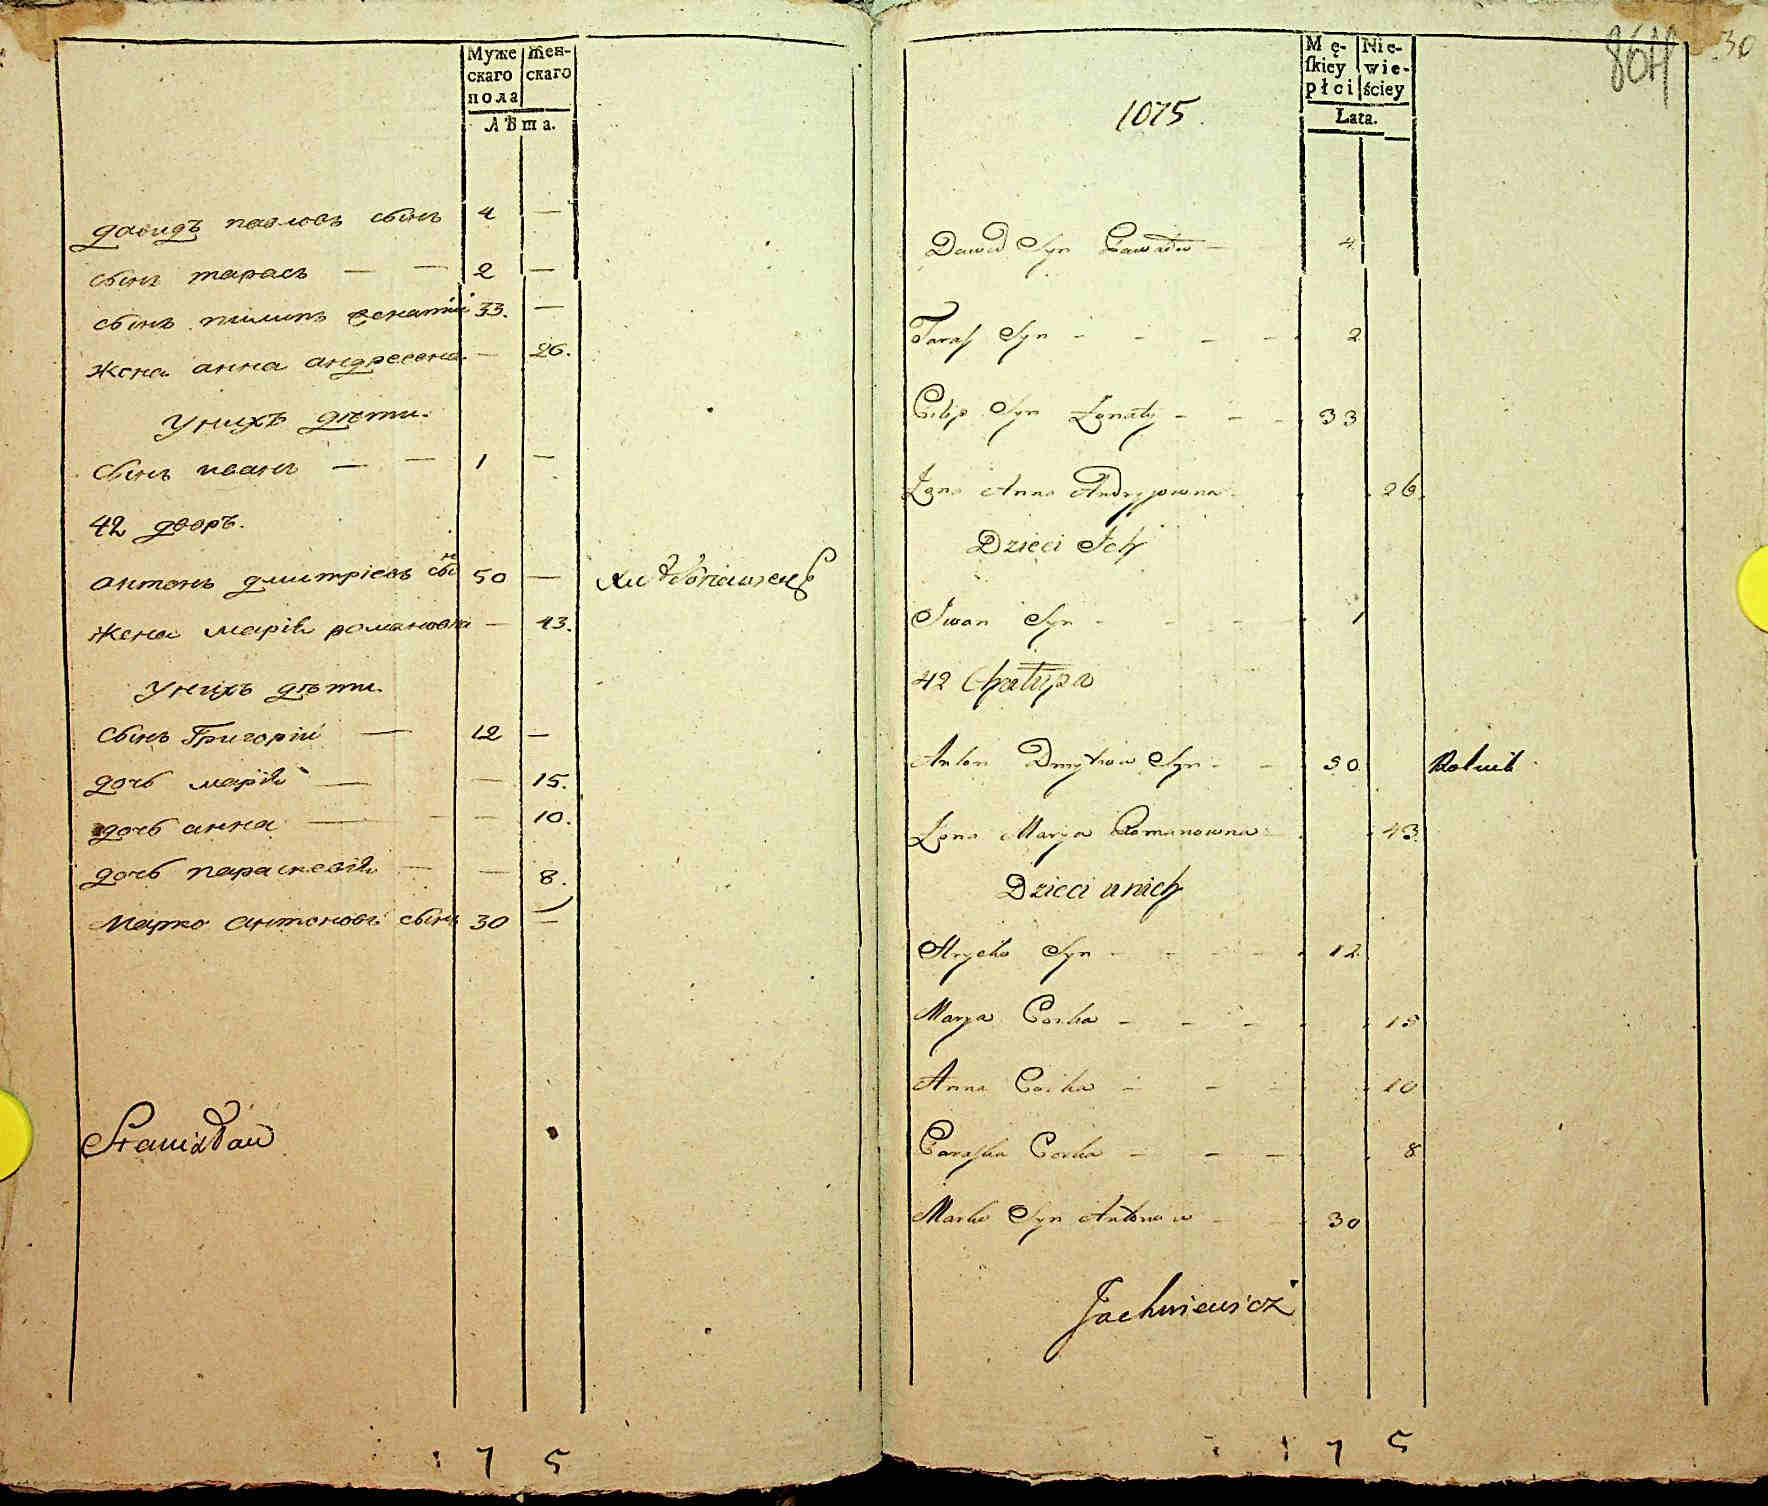 Муже Жен-
скаго скаго
пола
Лѣта.
давидъ павловъ сынъ 4 —
сынъ тарасъ — — 2 —
сынъ пилипъ 33. —
жена анна андреевна — 26.
у нихъ дѣти.
сынъ иванъ — — 1 —
42 дворъ.
антонъ дмитріевъ сынъ 50 —
жена марія романовна — 43.
у нихъ дѣти.
сынъ Григорій — 12 —
дочь марія — — 15.
дочь анна — — — 10.
дочь параскевія — — 8.
Марко антоновъ сынъ 30 —
Stanisław
7 5
864 30
Mę- Nie-
ſkiey wie-
płci ściey
Lata.
1075.
Dawid Syn Pawłów — 4.
Taraſ Syn - - - - 2
Filip Syn Ignaty - - - 33
Żona Anna Andryjowna 26.
Dzieci Ich
Iwan Syn - - - - 1
42 Chałupa
Anton Dmytrow Syn - - 50 Rolnik
Żona Marya Romanowna 43
Dzieci u nich
Hryćko Syn - - - - 12.
Marya Corka - - - 15
Anna Corka - - - 10
Paraſka Corka - - - 8
Marko Syn Antonow - - 30
Jachniewicz
7 5